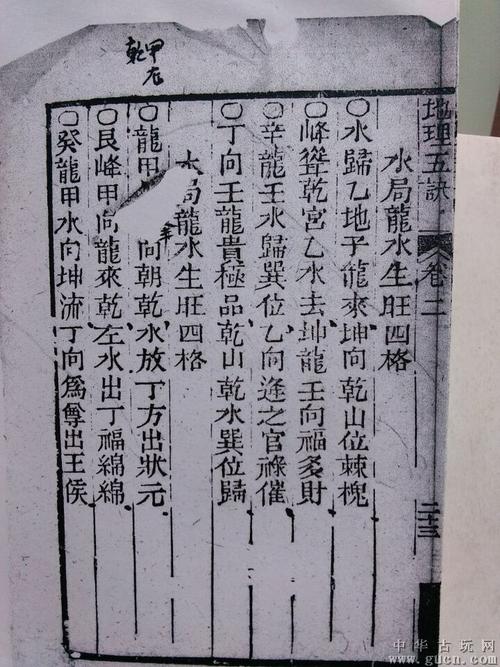 地理五訣 卷二 二十三
水局龍水生旺四格
○水歸乙地子龍來坤向乾山位棘槐
○峰聳乾宮乙水去坤龍壬向福多財
○辛龍壬水歸巽位乙向逢之官祿催
○丁向壬龍貴極品乾山乾水巽位歸
局龍水生旺四格
○龍甲向朝乾水放丁方出狀元
○艮峰甲向龍來乾左水出丁福綿綿
○癸龍甲水向坤流丁向為尊出王侯
甲
乾
中华古玩网
www.gucn.com